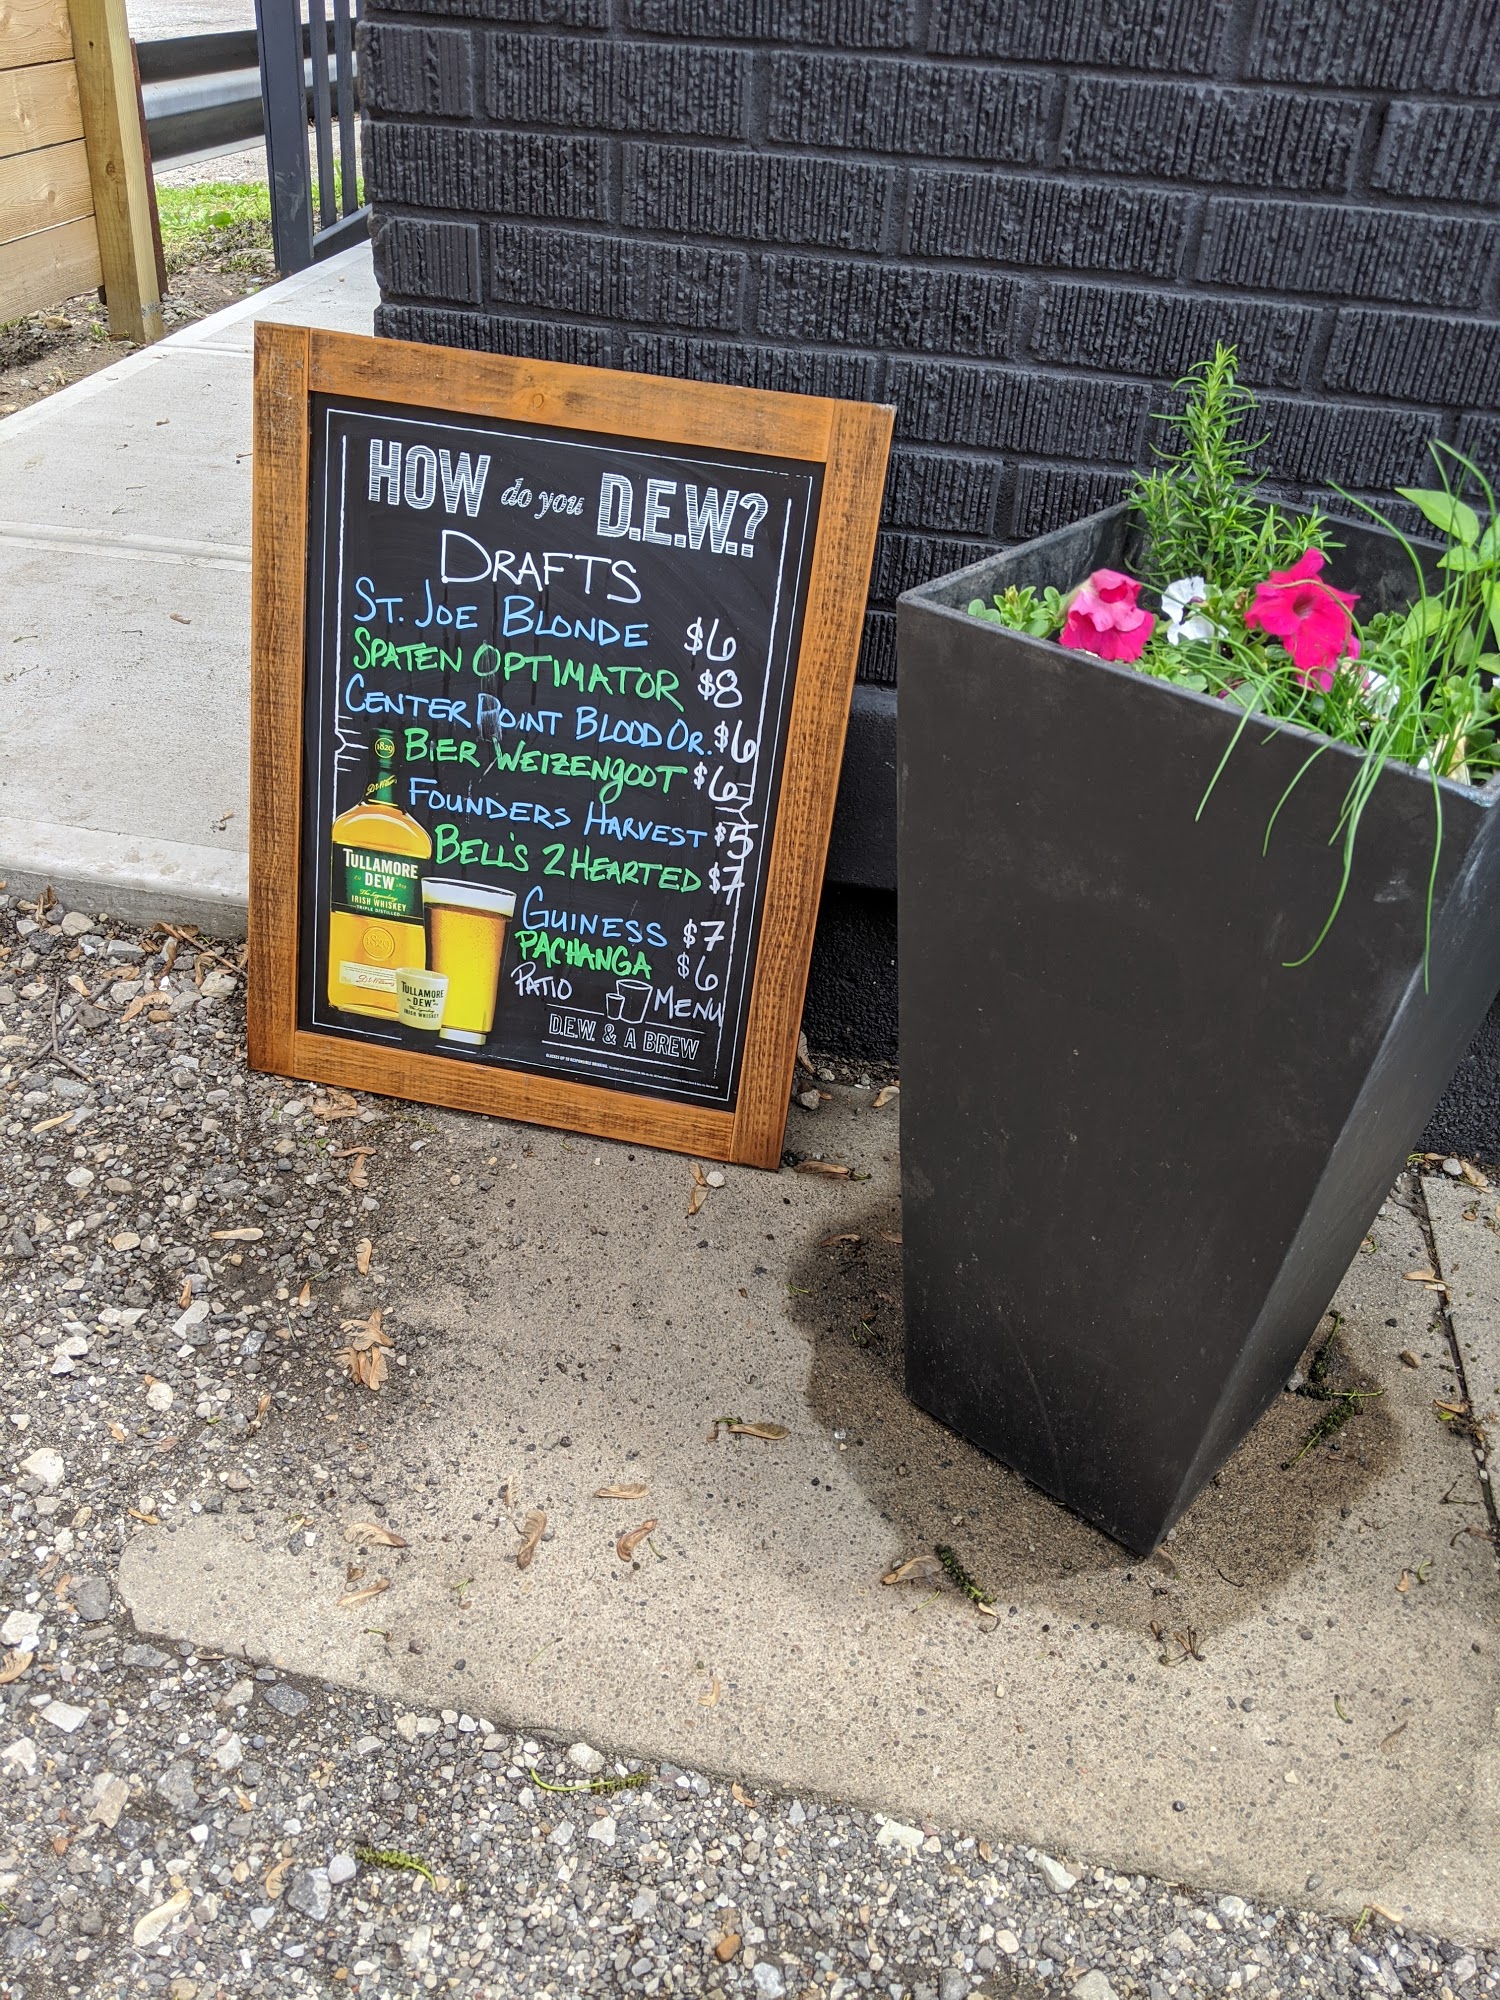 HOW do you D.E.W.?
DRAFTS
ST. JOE BLONDE $6
SPATEN OPTIMATOR $8
CENTER POINT BLOOD OR. $6
BIER WEIZENGOOT $6
FOUNDERS HARVEST $5
BELL'S 2 HEARTED $7
GUINESS $7
PACHANGA $6
PATIO MENU
D.E.W. & A BREW
1829
TULLAMORE
DEW
The Legendary
IRISH WHISKEY
TRIPLE DISTILLED
TULLAMORE
DEW
IRISH WHISKEY